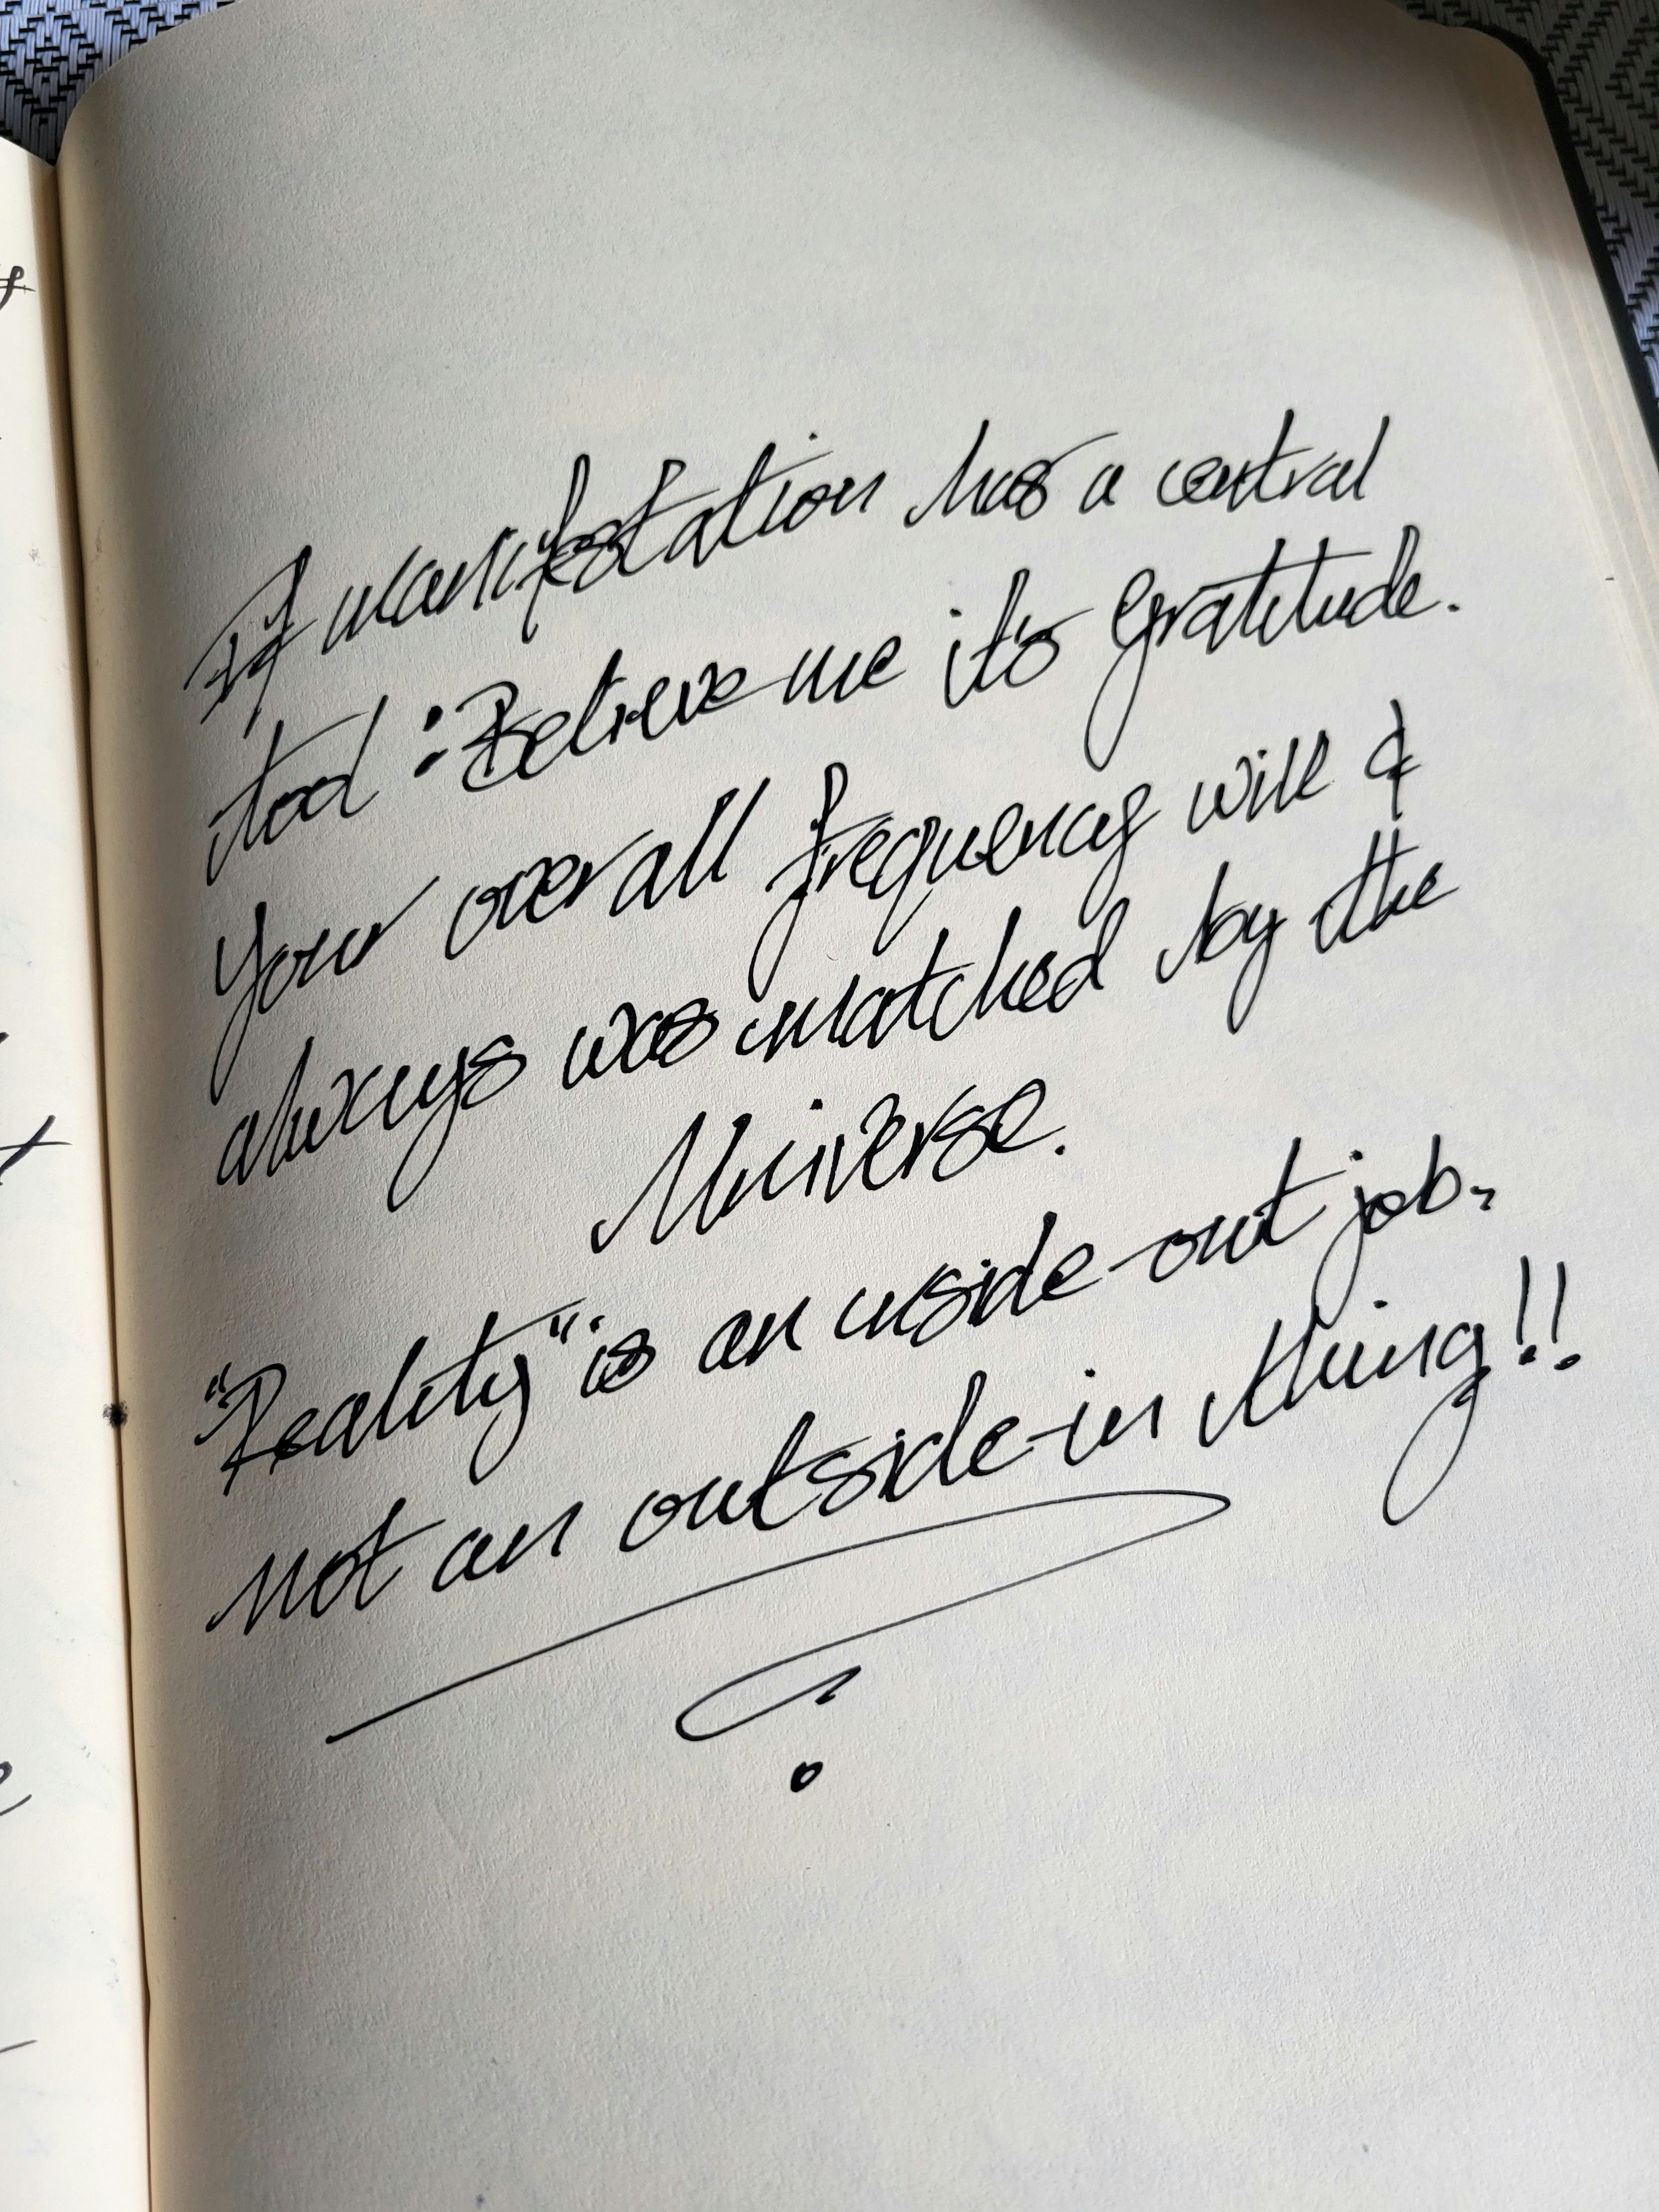 If manifestation has a central
tool: Believe me it's Gratitude.
Your overall frequency will &
always was matched by the
Universe.
"Reality" is an inside-out job,
not an outside-in thing!!